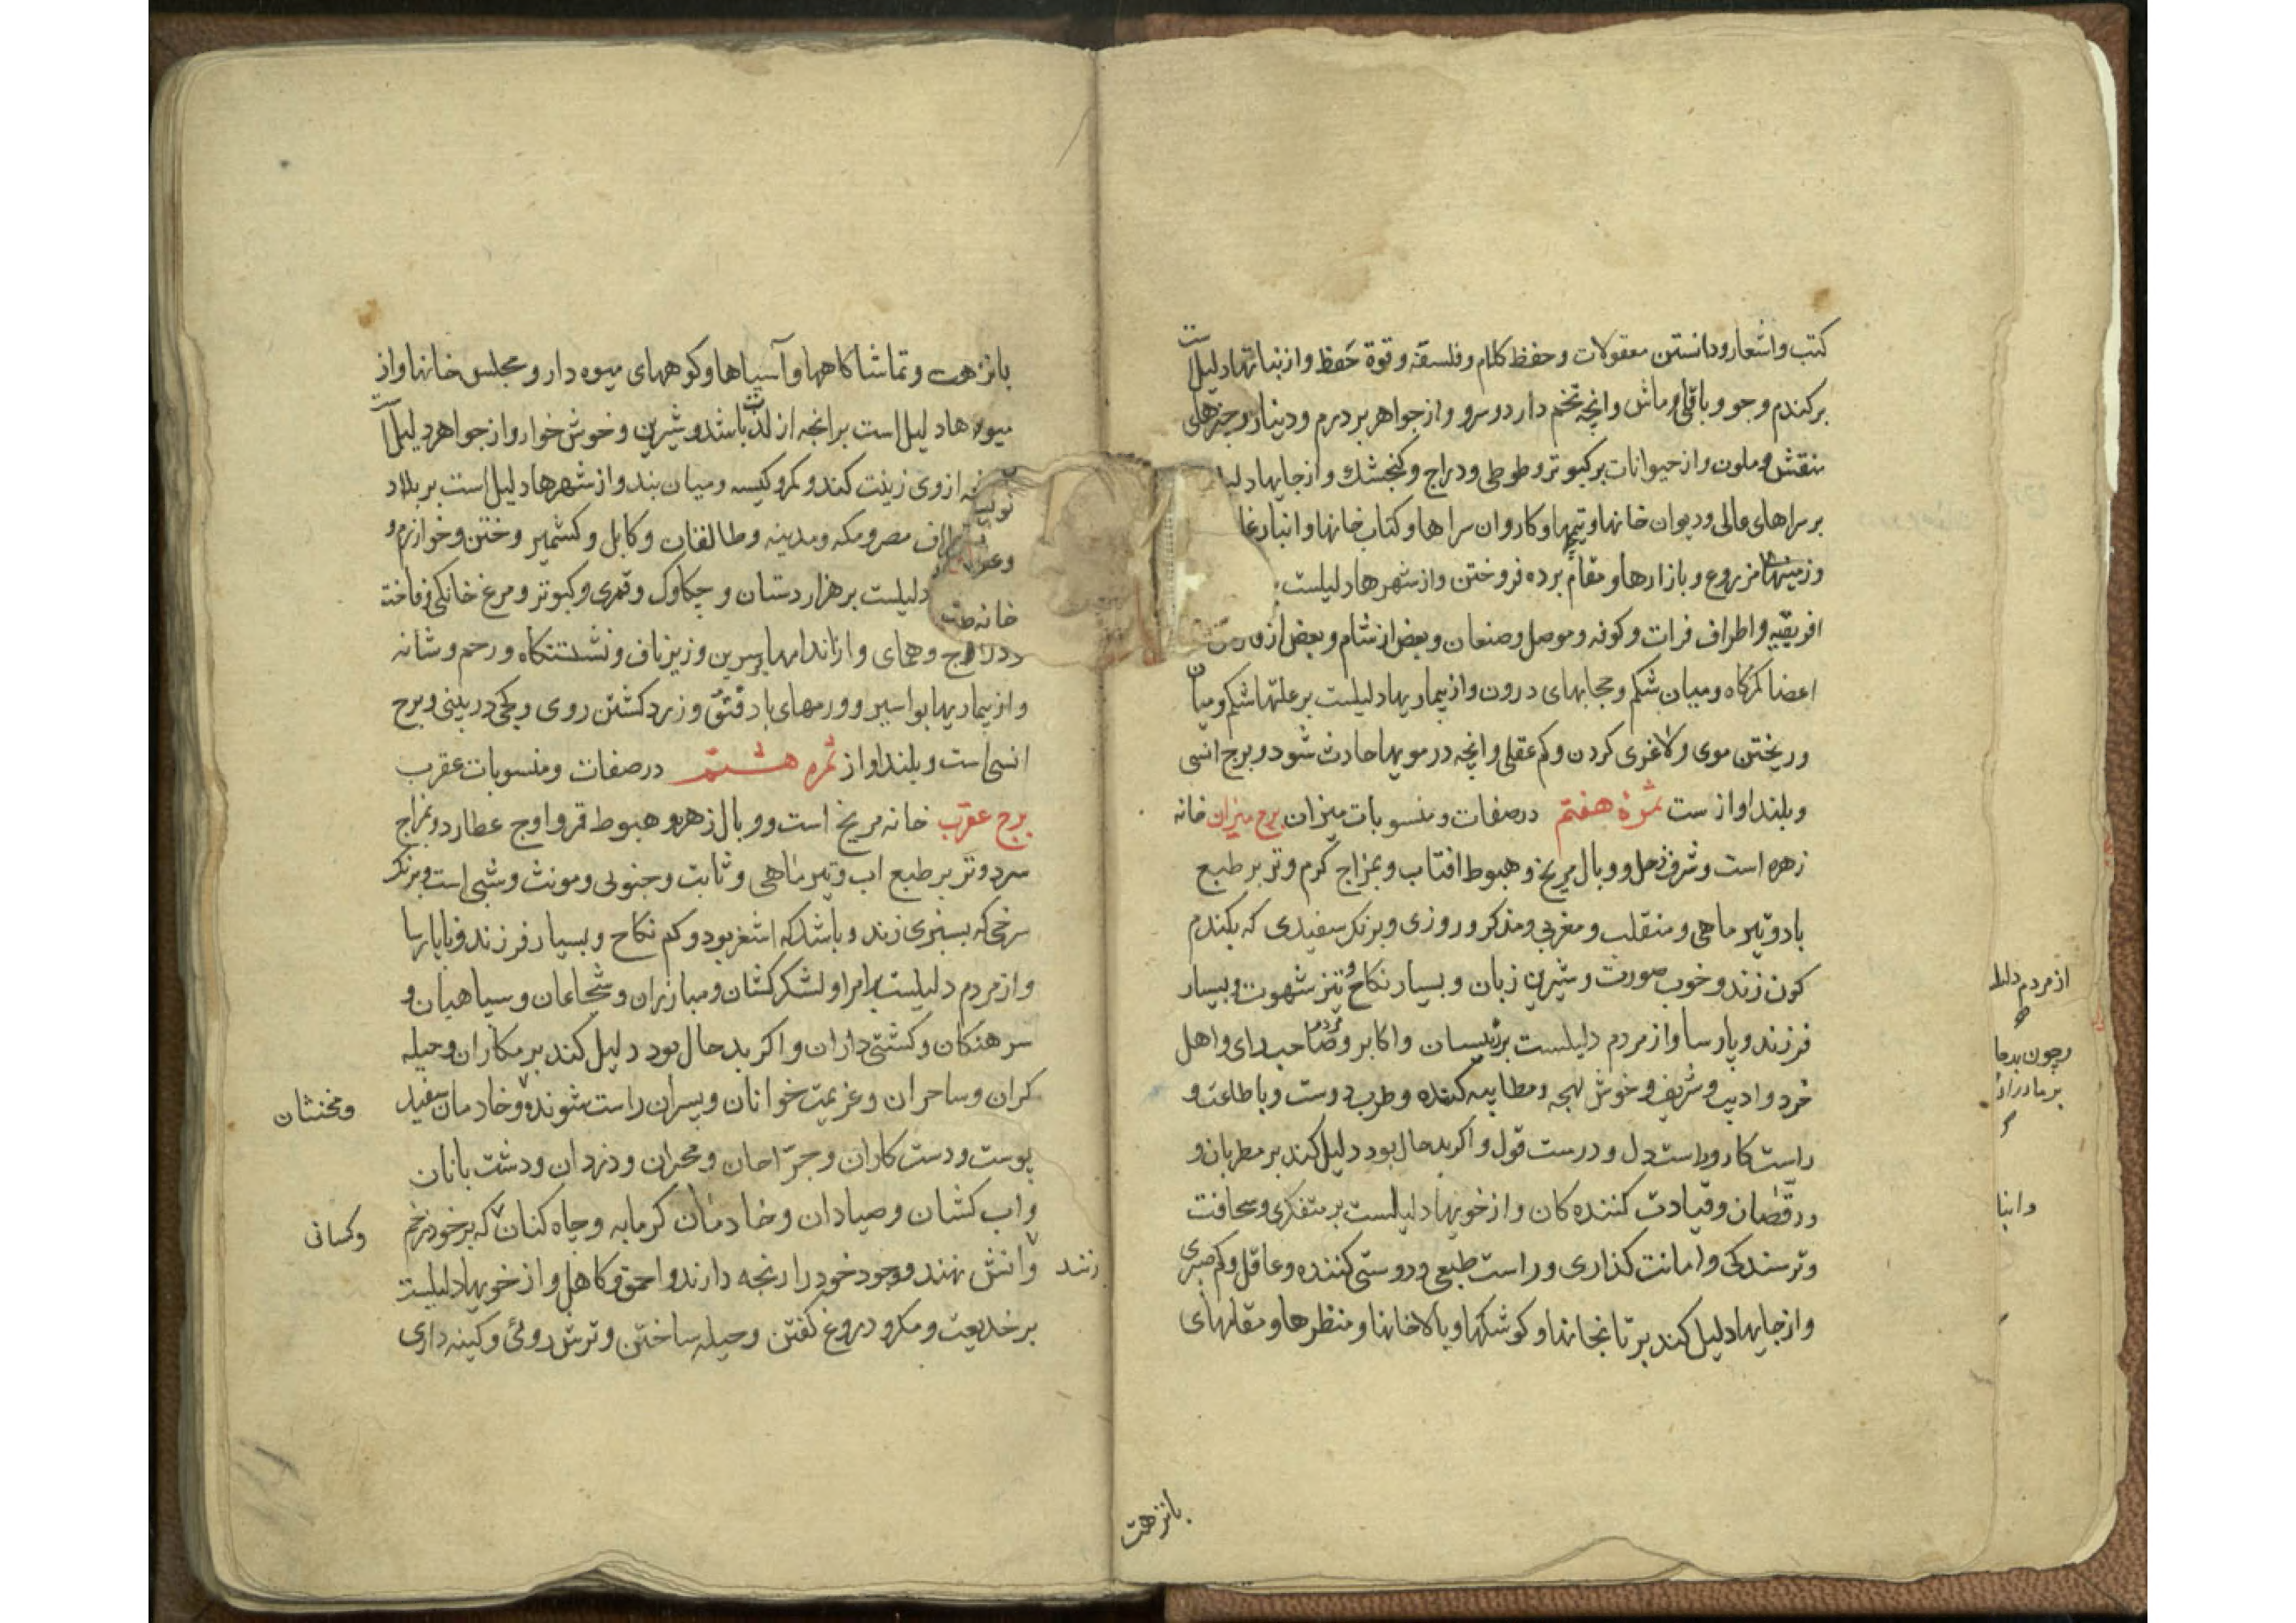 کتب و اشعار و دانستن معقولات و حفظ کلام و فلسفه و قوة حفظ و از نباتها دلیلست
بر کندم و جو و باقلی و ماش و انچه تخم دارد و سرو و از جواهر بر درم و دینار و چیزهای
منقش و ملون و از حیوانات بر کبوتر و طوطی و دراج و کنجشك و از جایها
بر سراهای عالی و دیوان خانها و تیمها و کاروان سراها و کتاب خانها و انبار
و زمینهاء مزروع و بازارها و مقام برده فروختن و از شهرها دلیلست
افریقیه و اطراف فرات و کوفه و موصل و صنعان و بعض از شام و بعض از
اعضا کمرکاه و میان شکم و حجابهای درون و از بیماریها دلیلست بر علتها شکم و میان
و ریختن موی و لاغری کردن و کم عقلی و انچه در مویها حادث شود و برج انسی
و بلند اواز ست ثمرهٔ هفتم در صفات و منسوبات میزان برج میزان خانه
زهره است و شرف زحل و وبال مریخ و هبوط افتاب و بمزاج کرم و تر بر طبع
باد و تیر ماهی و منقلب و مغربی و مذکر و روزی و برنک سفیدی که بکندم
کون زند و خوب صورت و شیرین زبان و بسیار نکاح و تیز شهوت و بسیار
فرزند و پارسا و از مردم دلیلست بر رئیسان و اکابر و مردم صاحب رای و اهل
خرد و ادیب و شریف و خوش لهجه و مطایبه کننده و طرب دوست و با طاعت و
راست کار و راست دل و درست قول و اکر بد حال بود دلیل کند بر مطربان و
و رقصان و قیادت کننده کان و از خویها دلیلست بر متفکری و سخافت
و ترسندکی و امانت کذاری و راست طبعی و دوستی کننده و عاقل و کم صبری
و از جایها دلیل کند بر تابخانها و کوشکها و بالاخانها و منظرها و مقامهای
بانزهت
از مردم
و چون
و انبا
بانزهت و تماشاکاهها و آسیاها و کوههای میوه دار و مجلس خانها و از
میوها دلیل است بر انچه از لذت باشد و شیرین و خوش خوار و از جواهر دلیل
از وی زینت کند و کمر و کیسه و میان بند و از شهرها دلیل است بر بلاد
مصر و مکه و مدینه و طالقان و کابل و کشمیر و ختن و خوارزم و
خانه دلیلست بر هزار دستان و چکاوک و قمری و کبوتر و مرغ خانکی و فاخته
و دراج و همای و از اندامها بر سرین و زیر ناف و نشستنکاه و رحم و شانه
و از بیماریها بواسیر و ورمهای باد فتق و زرد کشتن روی و کجی در بینی و برج
انسی است و بلند اواز ثمره هشتم در صفات و منسوبات عقرب
برج عقرب خانه مریخ است و وبال زهره و هبوط قمر و اوج عطارد و بمزاج
سرد و تر بر طبع اب و تیر ماهی و ثابت و جنوبی و مونث و شبی است و برنک
سرخی که بسبزی زند و باشد که اشغر بود و کم نکاح و بسیار فرزند و ناپارسا
و از مردم دلیلست بر امرا و لشکر کشان و مبارزان و شجاعان و سپاهیان و
سرهنکان و کشتی داران و اکر بد حال بود دلیل کند بر مکاران و حیله
کران و ساحران و عزیمت خوانان و پسران راست شونده و خادمان سفید
و مخنثان
پوست و دست کاران و جرّاحان و مجران و دزدان و دشت بانان
و اب کشان و صیادان و خادمان کرمابه و چاه کنان که بر خود زخم
و کسانی
زنند
و اتش نهند و وجود خود را رنجه دارند و احمق و کاهل و از خویها دلیلست
بر خدیعت و مکر و دروغ کفتن و حیله ساختن و ترش روئی و کینه داری